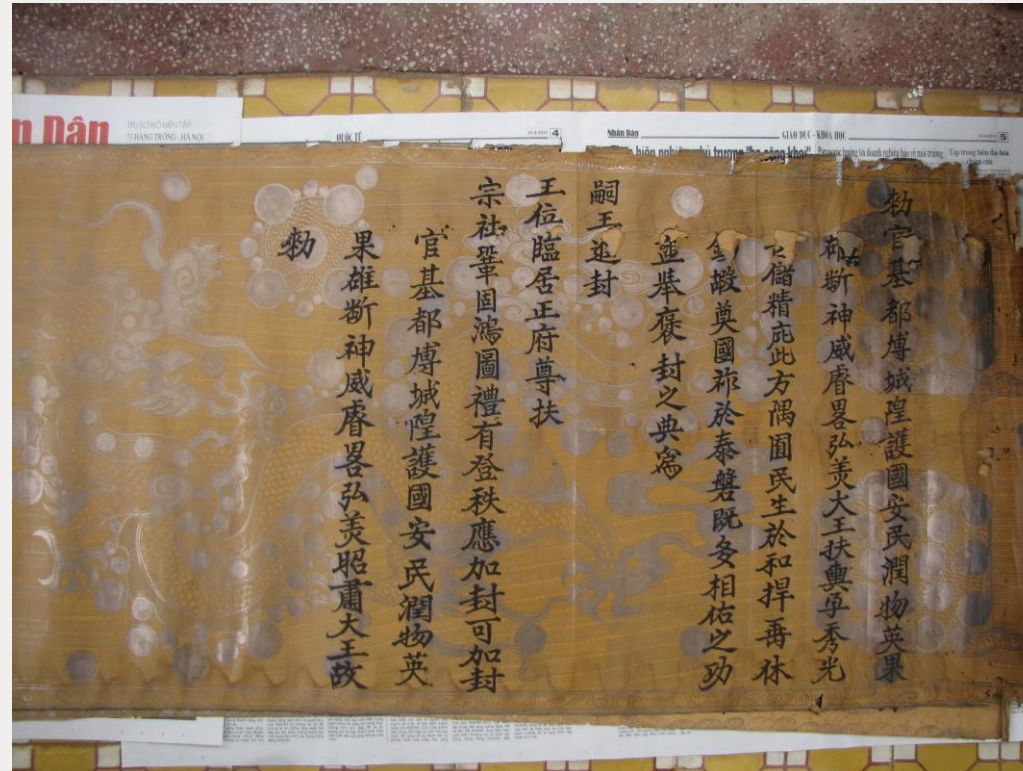 Dân
TRỤ SỞ BỘ BIÊN TẬP
71 HÀNG TRỐNG - HÀ NỘI
QUỐC TẾ 4
Nhân Dân GIÁO DỤC - KHOA HỌC 5
勑官基都博城隍護國安民潤物英果
断神威睿畧弘美大王扶輿孕秀光
儲精庇此方隅囿民生於和捍再休
嘏奠國祚於泰磐既多相佑之功
舉褒封之典為
嗣王進封
王位臨居正府尊扶
宗社鞏固鴻圖禮有登秩應加封可加封
官基都博城隍護國安民潤物英
果雄斷神威睿畧弘美昭肅大王故
勑